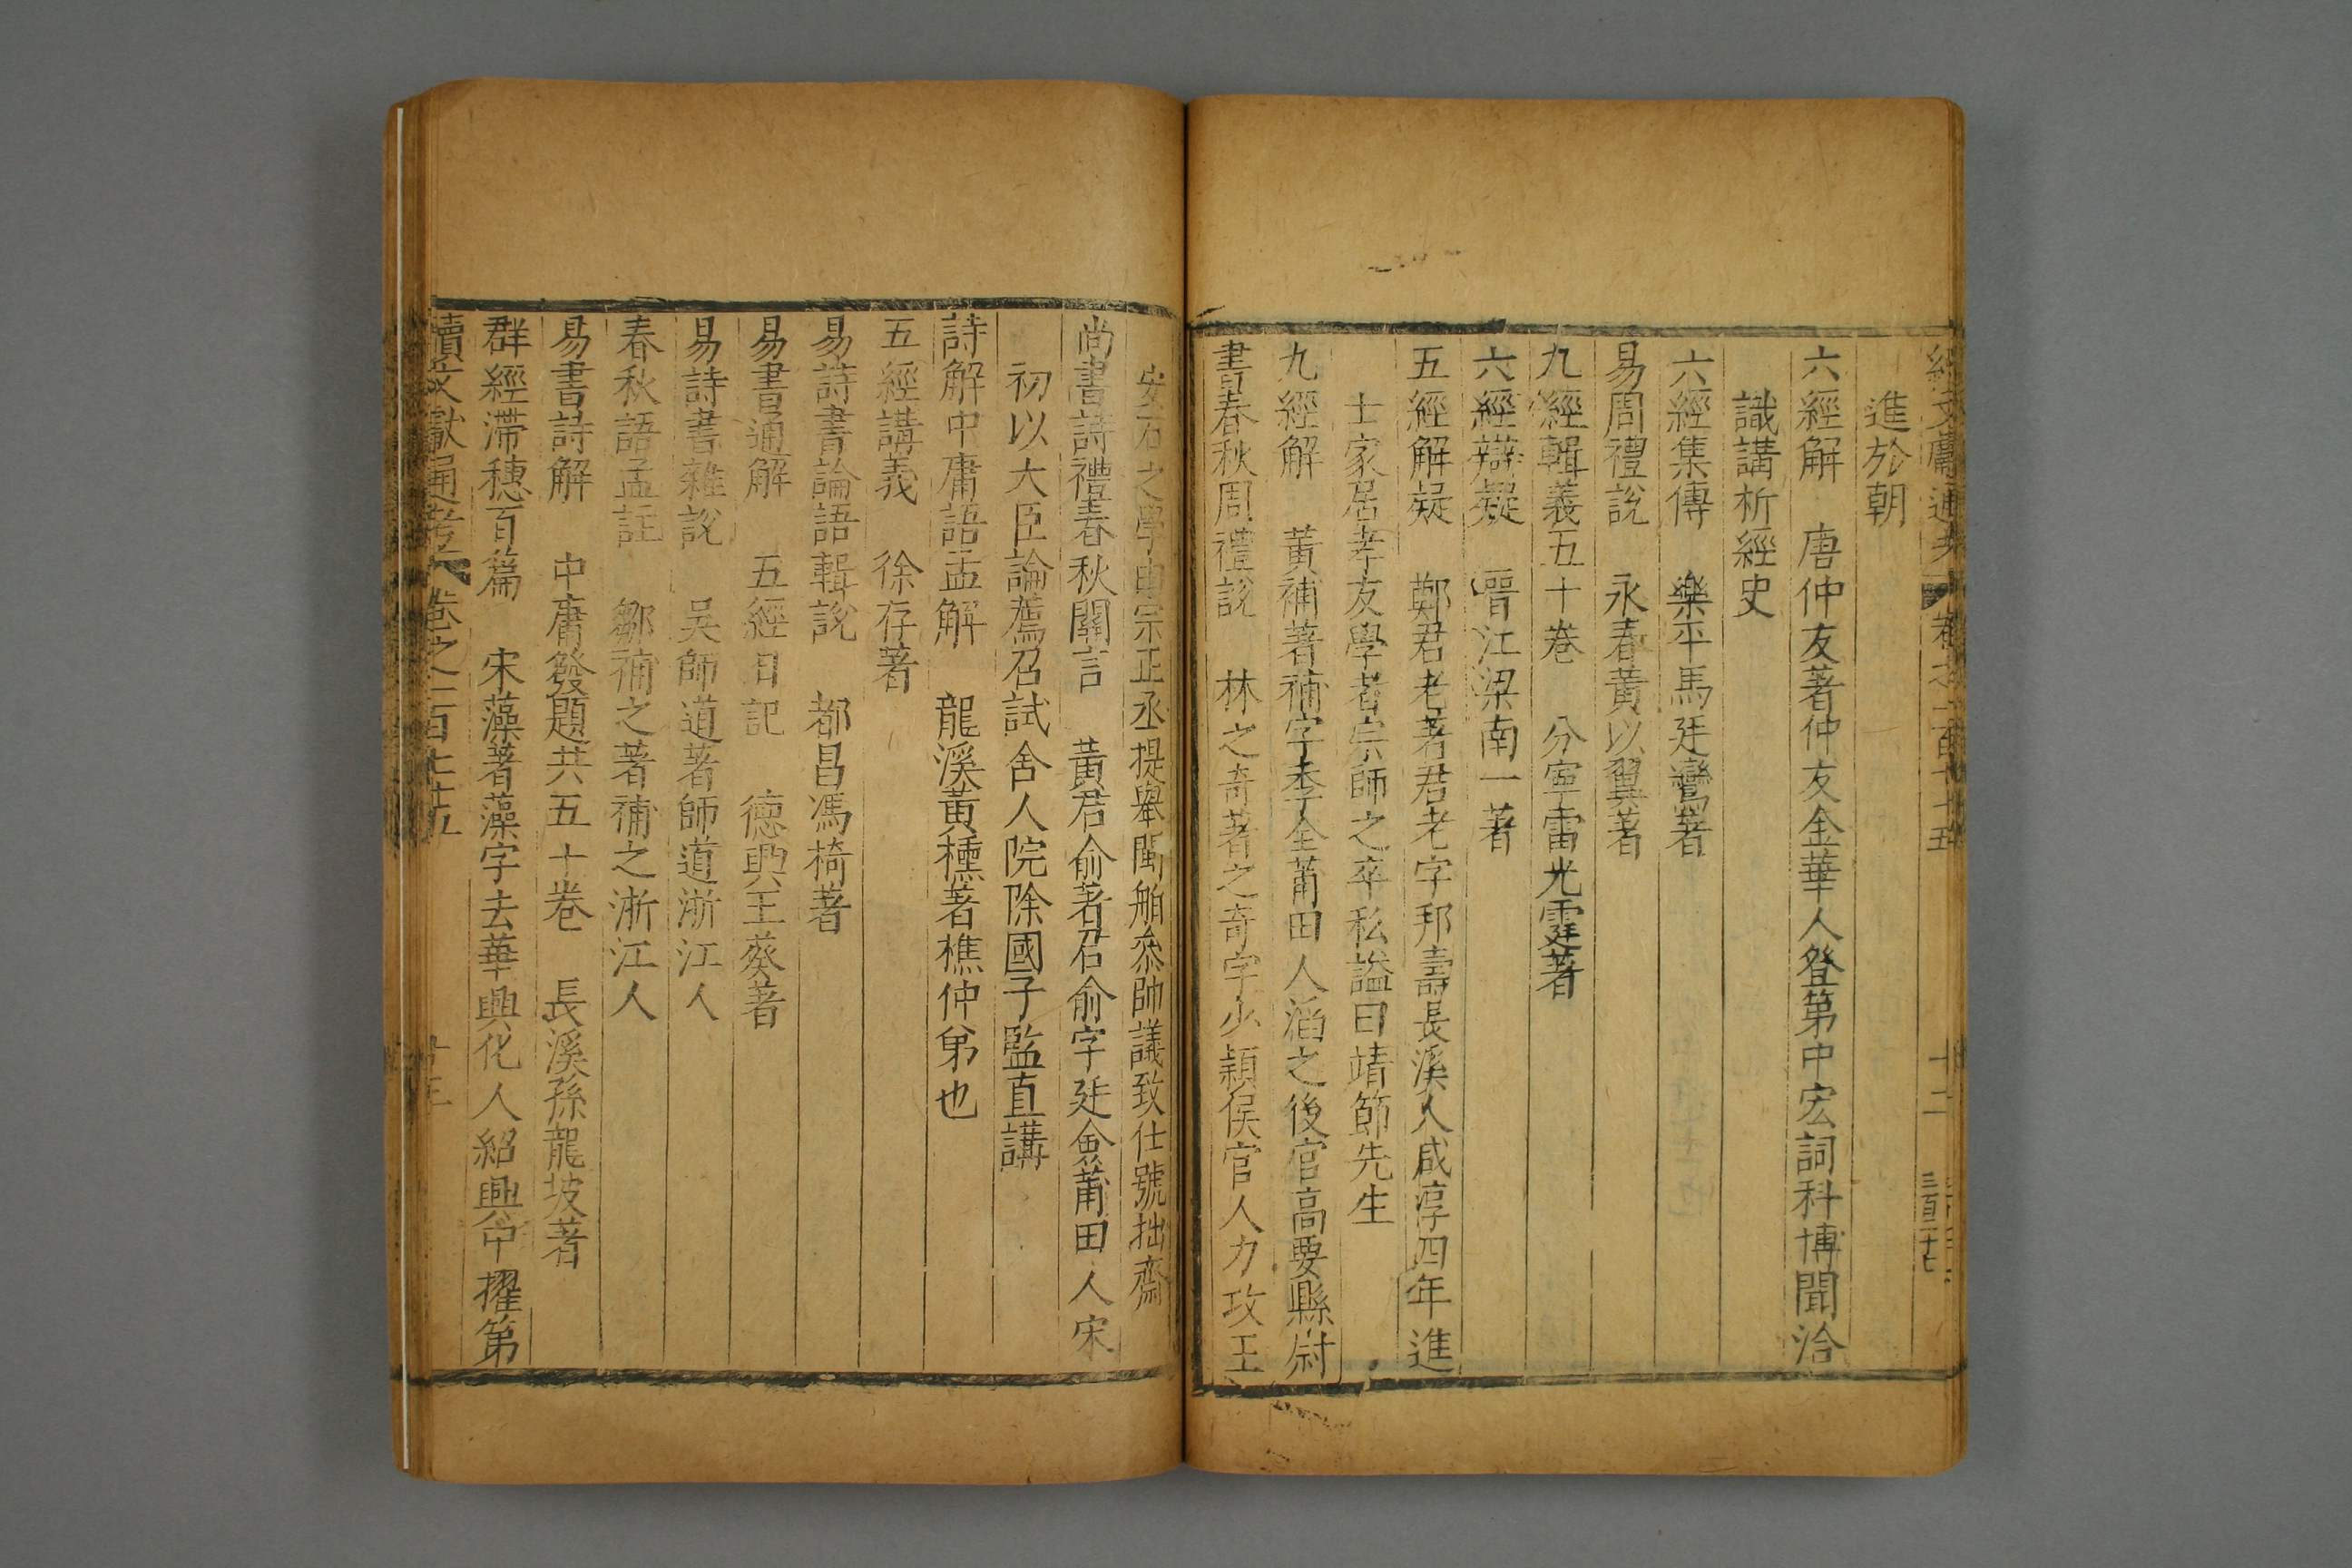 續文獻通考 卷之一百七十五 十二 三百二十七
進於朝
六經解 唐仲友著仲友金華人登第中宏詞科博聞洽
識講析經史
六經集傳 樂平馬廷鸞著
易周禮說 永春黃以翼著
九經輯義五十卷 分寧雷光霆著
六經辯疑 晉江梁南一著
五經解疑 鄭君老著君老字邦壽長溪人咸淳四年進
士家居孝友學者宗師之卒私謚曰靖節先生
九經解 黃補著補字季全莆田人滔之後官高要縣尉
書春秋周禮說 林之奇著之奇字少穎侯官人力攻王
安石之學由宗正丞提舉閩舶叅帥議致仕號拙齋
尚書詩禮春秋關言 黃君俞著君俞字廷僉莆田人宋
初以大臣論薦召試舍人院除國子監直講
詩解中庸語孟解 龍溪黃櫄著樵仲弟也
五經講義 徐存著
易詩書論語輯說 都昌馮椅著
易書通解 五經日記 德興王葵著
易詩書雜說 吳師道著師道浙江人
春秋語孟註 鄒補之著補之浙江人
易書詩解 中庸發題共五十卷 長溪孫龍坡著
群經滯穗百篇 宋藻著藻字去華興化人紹興中擢第
續文獻通考 卷之一百七十五